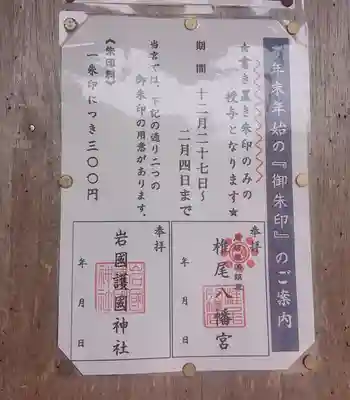 年末年始の『御朱印』のご案内
☆書き置き朱印のみの
授与となります☆
期間 十二月二十七日～
二月四日まで
当宮では、下記の通り二つの
御朱印の用意があります。
《朱印料》
一朱印につき三〇〇円
奉拝
椎尾八幡宮
年 月 日
奉拝
岩國護國神社
年 月 日